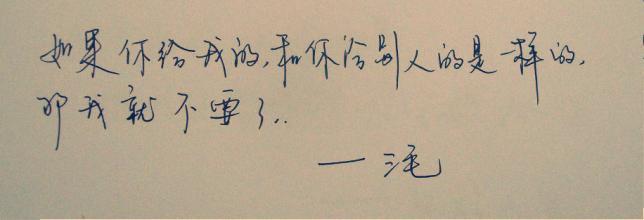 如果你给我的,和你给别人的是一样的,
那我就不要了..
——三毛